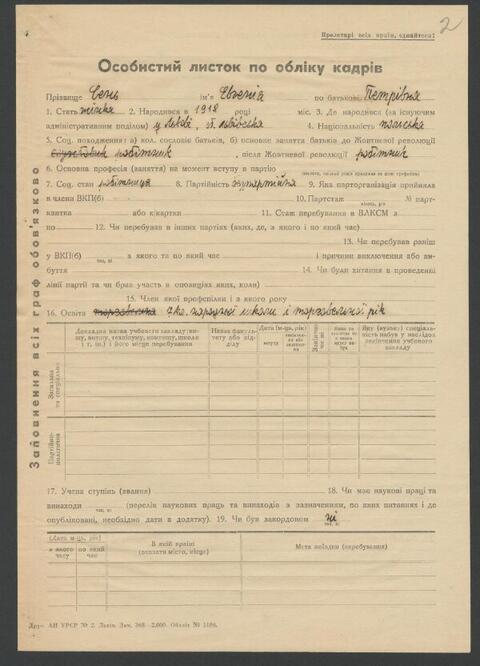 2
Пролетарі всіх країн, єднайтеся!
Особистий листок по обліку кадрів
Прізвище Сень ім'я Євгенія по батькові Петрівна
1. Стать жінка 2. Народився в 1918 році міс. 3. Де народився (за існуючим
адміністративним поділом) у Львові, Львівська 4. Національність польська
5. Соц. походження: а) кол. сословіє батьків, б) основне заняття батьків до Жовтневої революції
робітник, після Жовтневої революції робітник
6. Основна професія (заняття) на момент вступу в партію
7. Соц. стан робітниця 8. Партійність безпартійна 9. Яка парторганізація прийняла
в члени ВКП(б) 10. Партстаж № парт-
квитка або к/картки 11. Стаж перебування в ВЛКСМ з
по 12. Чи перебував в інших партіях (яких, де, з якого і по який час)
13. Чи перебував раніш
у ВКП(б) з якого та по який час і причини виключення або ви-
буття 14. Чи були хитання в проведенні
лінії партії та чи брав участь в опозиціях, яких, коли)
15. Член якої профспілки і з якого року
16. Освіта 7 кл. народної школи і торговельної рік
Заповнення всіх граф обов'язково
Докладна назва учбового закладу (ви-
шу, втузу, технікуму, комвузу, школи
і т. ін.) і його місце перебування
Назва факуль-
тету або від-
ділу
Дата (м-ць, рік)
вступу
Яку (вузьку) спеціаль-
ність набув у наслідок
закінчення учбового
закладу
Загальна
та спеціальна
Партійно-
політична
17. Учена ступінь (звання) 18. Чи має наукові праці та
винаходи (перелік наукових праць та винаходів з зазначенням, по яких питаннях і де
опубліковані, необхідно дати в додатку). 19. Чи був закордоном ні
(Дата м-ць, рік)
з якого часу
по який час
В якій країні
(вказати місто, місце)
Мета поїздки (перебування)
Друк. АН УРСР № 2. Львів. Зам. 368—2.000. Облліт № 1186.